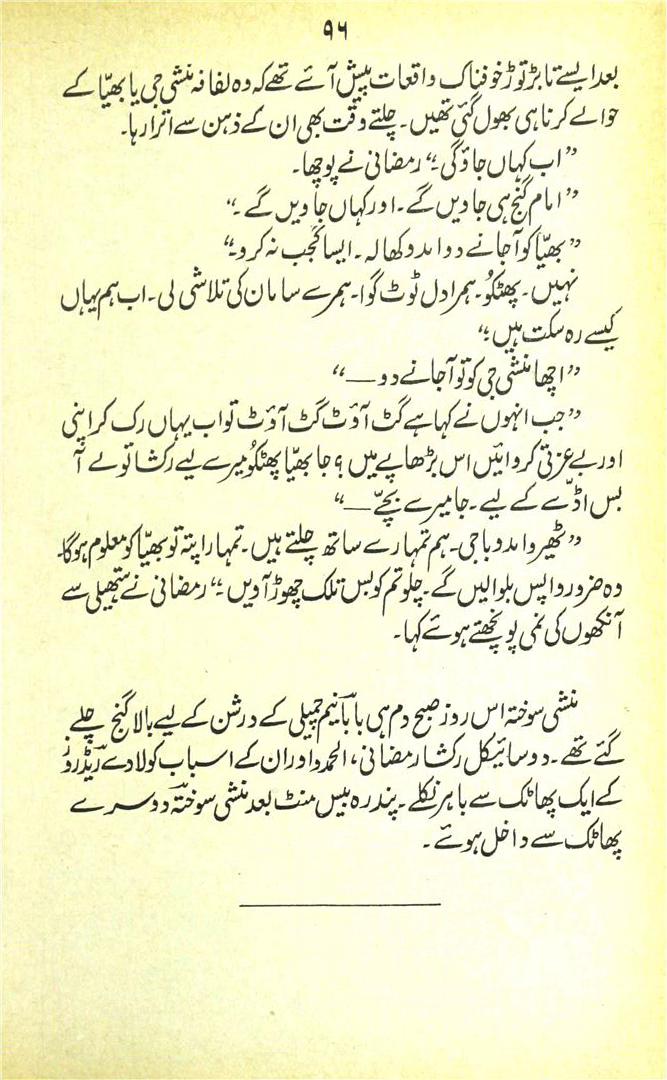 ۹۶
بعد ایسے تابڑ توڑ خوفناک واقعات پیش آئے تھے کہ وہ لفافہ منشی جی یا بھیّا کے
حوالے کرنا ہی بھول گئی تھیں۔ چلتے وقت بھی ان کے ذہن سے اترا رہا۔
”اب کہاں جاؤ گی۔“ رمضانی نے پوچھا۔
”امام گنج ہی جاویں گے۔ اور کہاں جاویں گے۔“
”بھیّا کو آ جانے دو امدو کھالہ۔ ایسا گجب نہ کرو۔“
نہیں۔ پھٹکُو۔ ہمرا دل ٹوٹ گوا۔ ہمرے سامان کی تلاشی لی۔ اب ہم یہاں
کیسے رہ سکت ہیں۔“
”اچھا منشی جی کو تو آ جانے دو —“
”جب انہوں نے کہا ہے گٹ آؤٹ گٹ آؤٹ تو اب یہاں رک کر اپنی
اور بے عزتی کروائیں اس بڑھاپے میں؟ جا بھیّا پھٹکُو میرے لیے رکشا تو لے آ
بس اڈّے کے لیے۔ جا میرے بچّے —“
”ٹھیرو امدو باجی۔ ہم تمہارے ساتھ چلتے ہیں۔ تمہارا پتہ تو بھیّا کو معلوم ہوگا۔
وہ ضرور واپس بلوالیں گے۔ چلو تم کو بس تلک چھوڑ آویں۔“ رمضانی نے ہتھیلی سے
آنکھوں کی نمی پونچھتے ہوئے کہا۔
منشی سوختہ اس روز صبح دم ہی بابا نیم چمپیلی کے درشن کے لیے بالا گنج چلے
گئے تھے۔ دو سائیکل رکشا رمضانی، الحمدو اور ان کے اسباب کو لادے ریڈ روز
کے ایک پھاٹک سے باہر نکلے۔ پندرہ بیس منٹ بعد منشی سوختہ دوسرے
پھاٹک سے داخل ہوئے۔